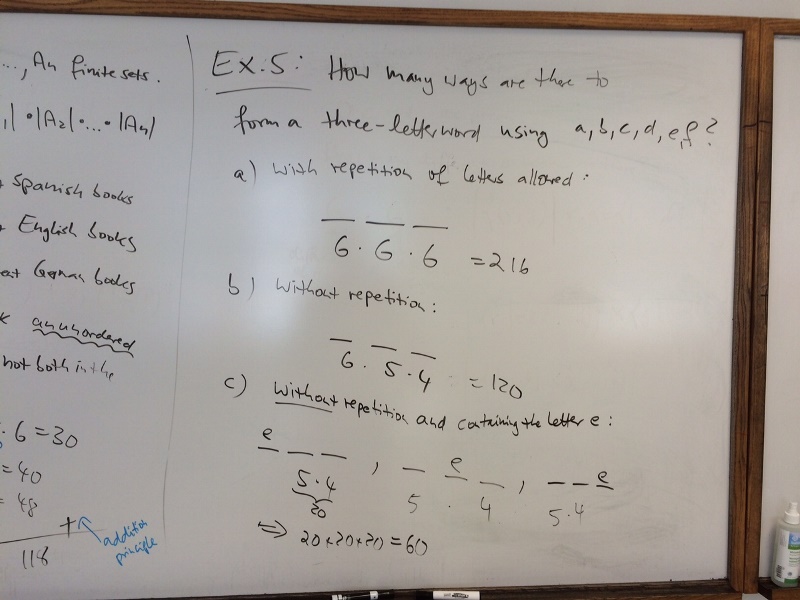 ..., An finite sets.
| • |A2| • ... • |An|
Spanish books
English books
German books
an unordered
not both in the
. 6 = 30
= 40
= 48
+
addition
principle
118
Ex. 5: How many ways are there to
form a three-letter word using a, b, c, d, e, f ?
a) With repetition of letters allowed :
6 . 6 . 6 = 216
b) Without repetition :
6 . 5 . 4 = 120
c) Without repetition and containing the letter e :
e _ _ , _ e _ , _ _ e
5 . 4 5 . 4 5 . 4
20
⇒ 20 + 20 + 20 = 60